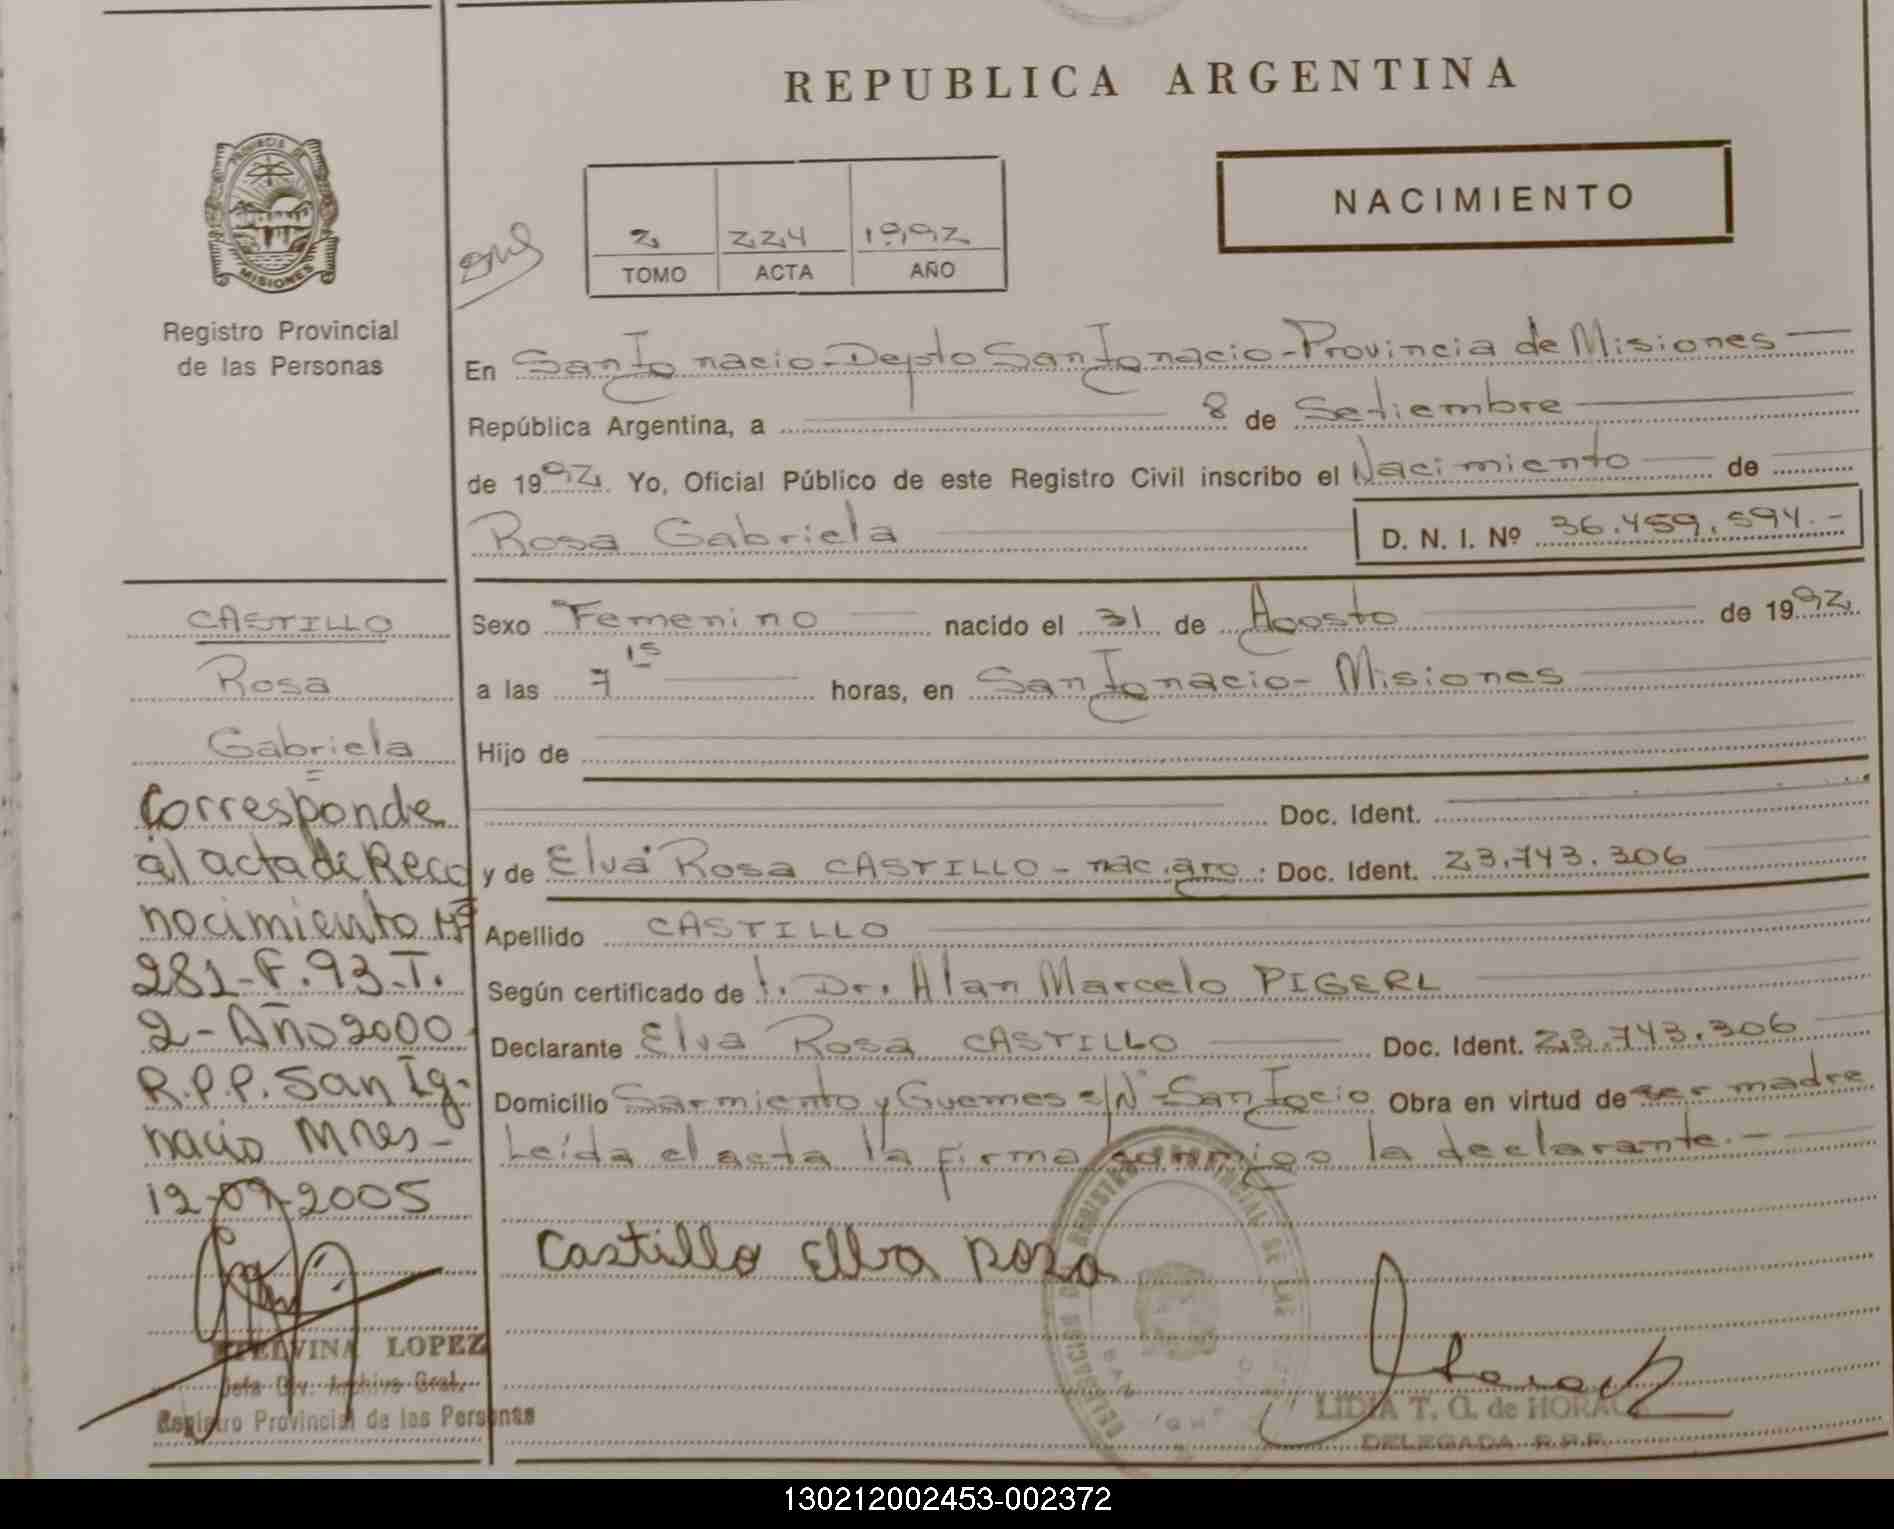 REPUBLICA ARGENTINA
PROVINCIA DE
MISIONES
Registro Provincial
de las Personas
NACIMIENTO
2 224 1992
TOMO ACTA AÑO
En San Ignacio - Depto San Ignacio - Provincia de Misiones
República Argentina, a 8 de Setiembre
de 1992. Yo, Oficial Público de este Registro Civil inscribo el Nacimiento de
Rosa Gabriela D. N. I. Nº 36.459.594.-
Sexo Femenino nacido el 31 de Agosto de 1992
a las 7 15 horas, en San Ignacio - Misiones
Hijo de
Doc. Ident.
y de Elva Rosa CASTILLO - nac. arg. Doc. Ident. 23.743.306
Apellido CASTILLO
Según certificado de Dr. Alan Marcelo PIGERL
Declarante Elva Rosa CASTILLO Doc. Ident. 23.743.306
Domicilio Sarmiento y Guemes s/Nº San Igcio Obra en virtud de ser madre
Leída el acta la firma conmigo la declarante.-
Castillo Elba Rosa
LIDIA T. O. de HORACK
DELEGADA R.P.P.
CASTILLO
Rosa
Gabriela
=
Corresponde
al acta de Reco
nocimiento Nº
281-F.93-T.
2-Año 2000
R.P.P. San Ig-
nacio Mnes-
12-09-2005
ETELVINA LOPEZ
Jefa Div. Archivo Gral.
Registro Provincial de las Personas
130212002453-002372